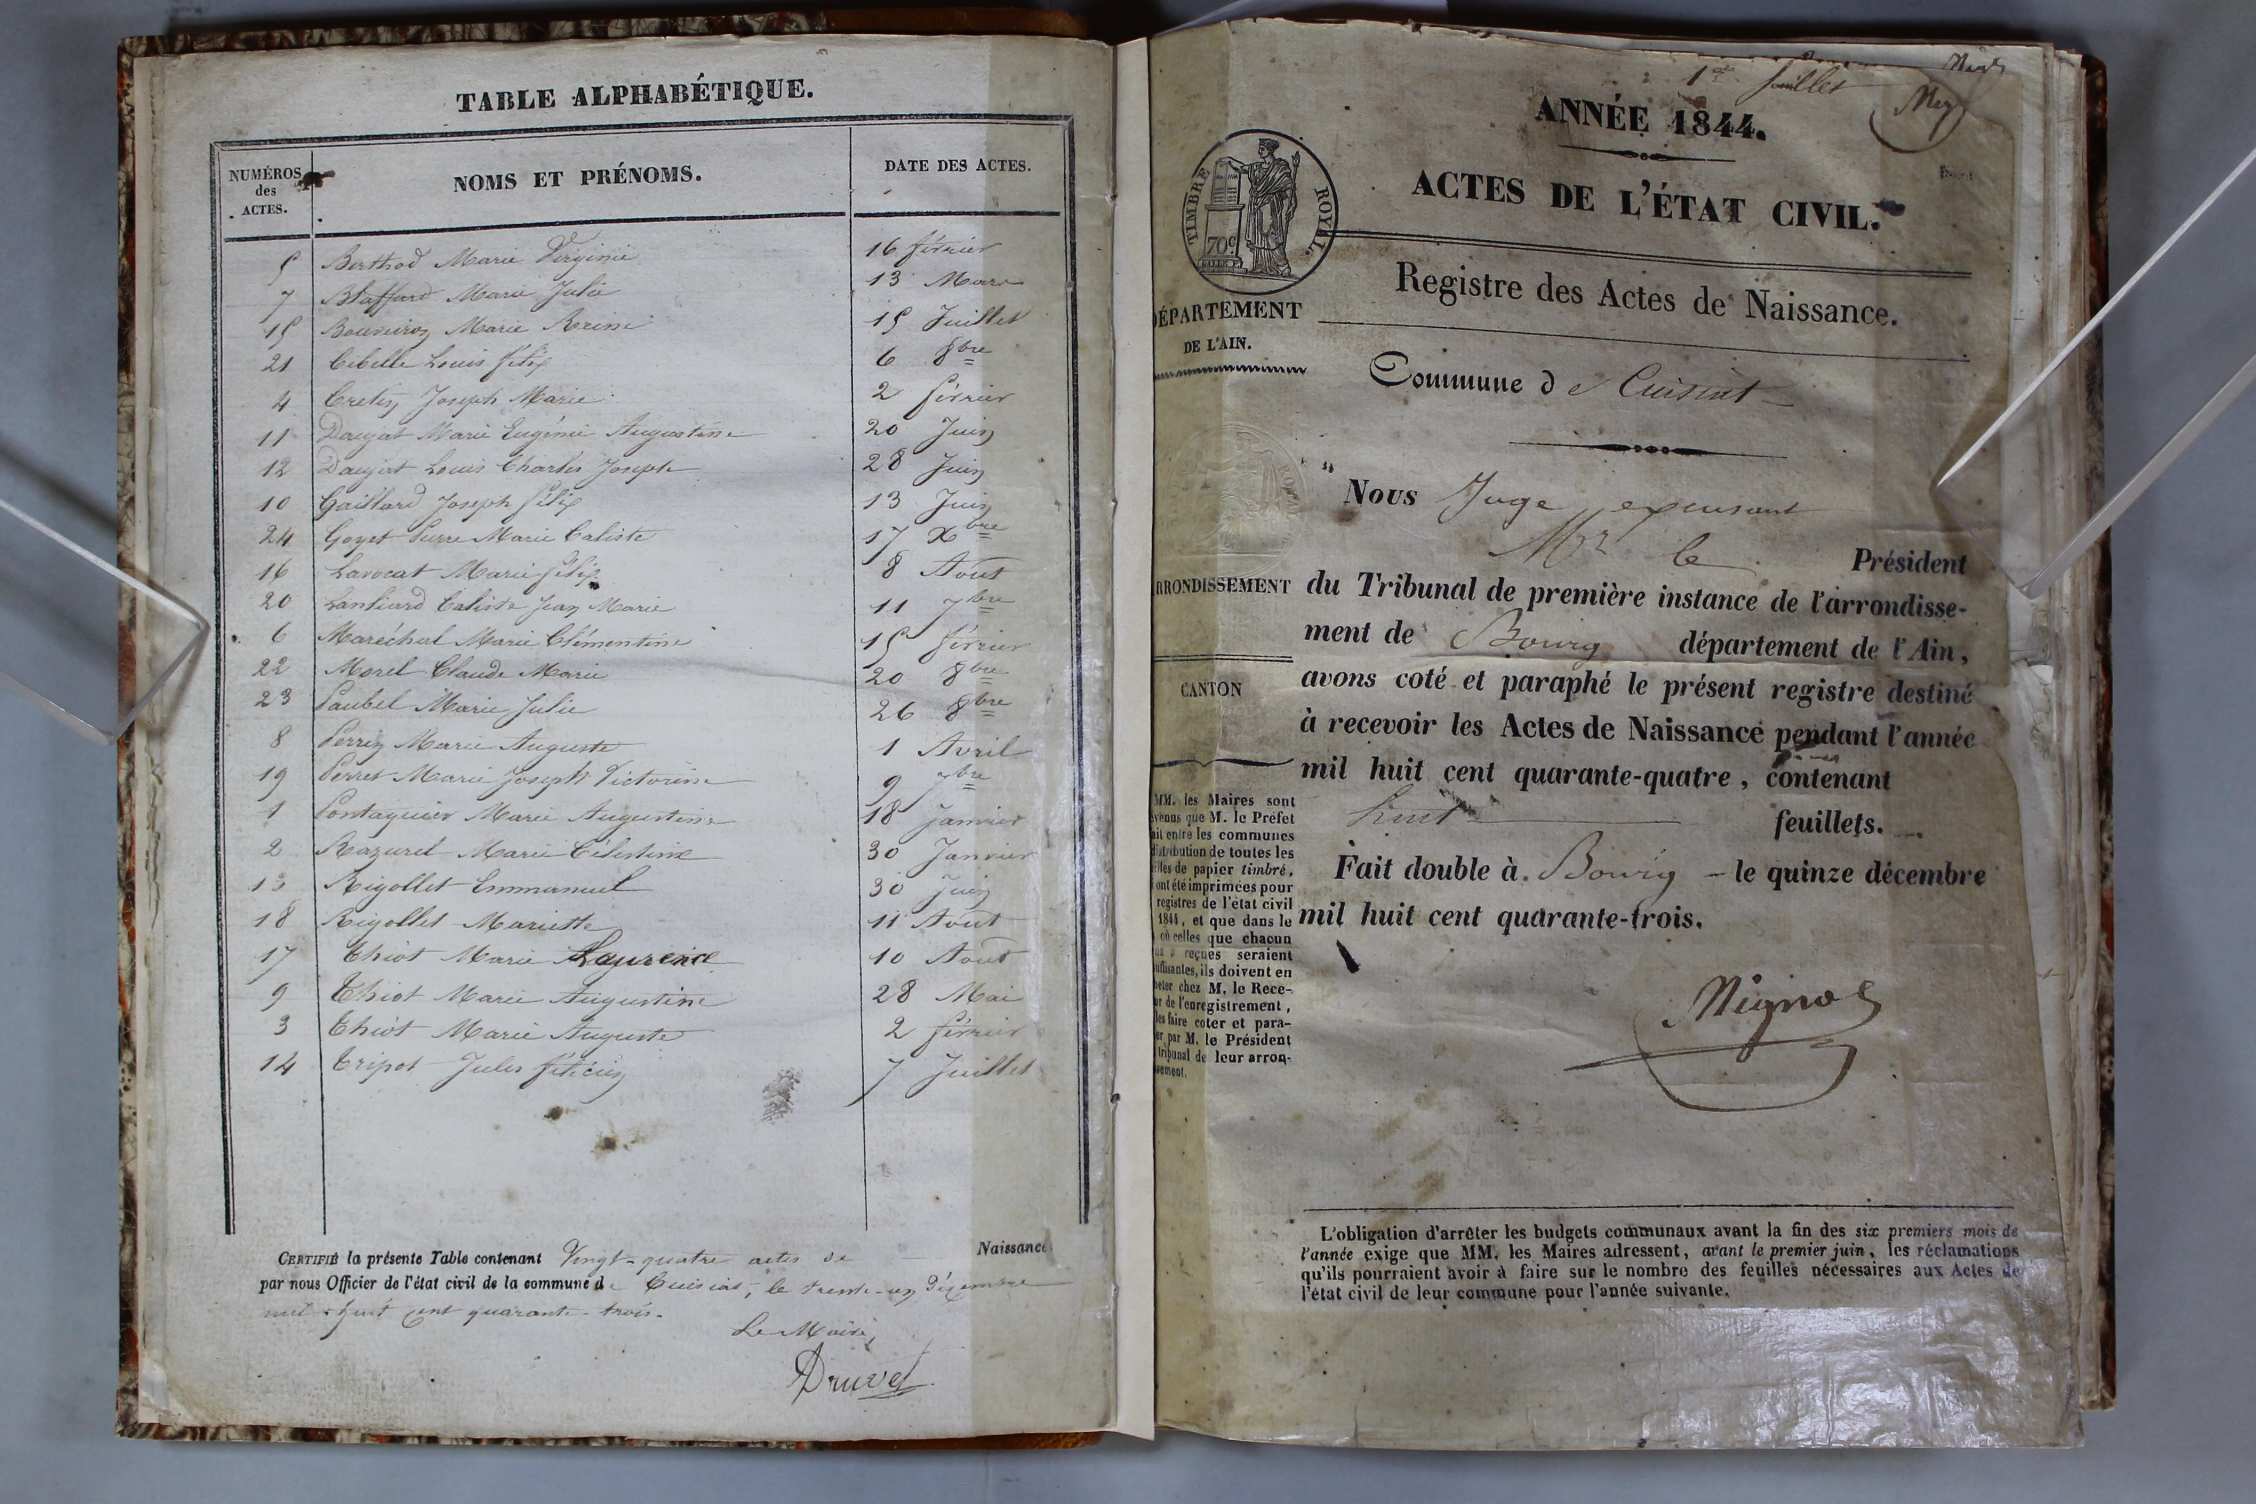 TABLE ALPHABÉTIQUE.
NUMÉROS des ACTES.
NOMS ET PRÉNOMS.
DATE DES ACTES.
5 Berthod Marie Virginie 16 février
7 Blaffard Marie Julie 13 Mars
15 Bouveiron Marie 15 Juillet
21 Cibelle Louis félix 6 8bre
4 Cretin Joseph Marie 2 février
11 Daujat Marie Eugénie Augustine 20 Juin
12 Daujat Louis Charles Joseph 28 Juin
10 Gaillard Joseph félix 13 Juin
24 Goyet Pierre Marie Caliste 17 Xbre
16 Lavocat Marie félix 8 Août
20 Lanliard Caliste Jean Marie 11 7bre
6 Maréchal Marie Clémentine 15 février
22 Morel Claude Marie 20 8bre
23 Paubel Marie Julie 26 8bre
8 Perrin Marie Auguste 1 Avril
19 Perret Marie Joseph Victorine 9 7bre
1 Pontaquier Marie Augustine 18 Janvier
2 Razurel Marie Célestine 30 Janvier
13 Rigollet Emmanuel 30 Juin
18 Rigollet Mariette 11 Août
17 Thiot Marie Laurence 10 Août
9 Thiot Marie Augustine 28 Mai
3 Thiot Marie Auguste 2 février
14 Tripot Jules félicien 7 Juillet
CERTIFIÉ la présente Table contenant Vingt-quatre actes de Naissance
par nous Officier de l'état civil de la commune de Cuisiat, le trente-un Décembre
mil huit cent quarante-trois.
Le Maire,
Druvel
1er feuillet
ANNÉE 1844.
ACTES DE L'ÉTAT CIVIL.
TIMBRE ROYAL.
70c
Registre des Actes de Naissance.
DÉPARTEMENT
DE L'AIN.
Commune de Cuisiat
Nous Juge expensant
Mr le Président
ARRONDISSEMENT
du Tribunal de première instance de l'arrondisse-
ment de Bourg département de l'Ain,
CANTON
avons coté et paraphé le présent registre destiné
à recevoir les Actes de Naissance pendant l'année
mil huit cent quarante-quatre, contenant
huit feuillets.
Fait double à Bourg le quinze décembre
mil huit cent quarante-trois.
MM. les Maires sont
venus que M. le Préfet
ait entre les communes
distribution de toutes les
illes de papier timbré,
ont été imprimées pour
registres de l'état civil
1844, et que dans le
où celles que chacun
reçues seraient
uffisantes, ils doivent en
eter chez M. le Rece-
ur de l'enregistrement,
les faire coter et para-
er par M. le Président
tribunal de leur arron-
sement.
L'obligation d'arrêter les budgets communaux avant la fin des six premiers mois de
l'année exige que MM. les Maires adressent, avant le premier juin, les réclamations
qu'ils pourraient avoir à faire sur le nombre des feuilles nécessaires aux Actes de
l'état civil de leur commune pour l'année suivante.